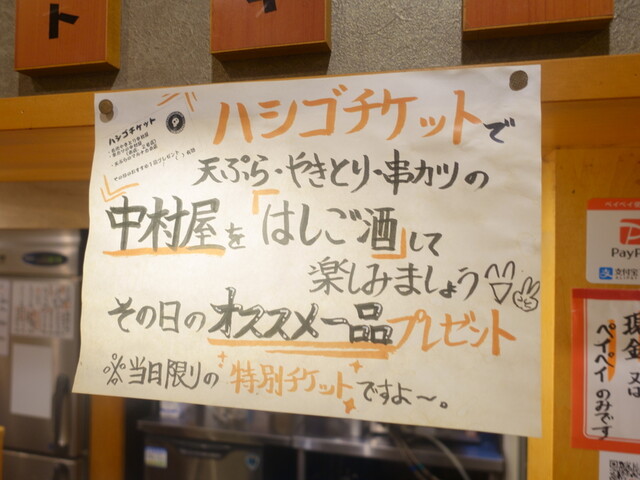 ト
ハシゴチケット
ハシゴチケットで
天ぷら・やきとり・串カツの
中村屋を「はしご酒」して
楽しみましょう
その日のオススメ一品プレゼント
※当日限りの特別チケットですよ〜。
PayP
支付宝
現金又は
ペイペイのみです